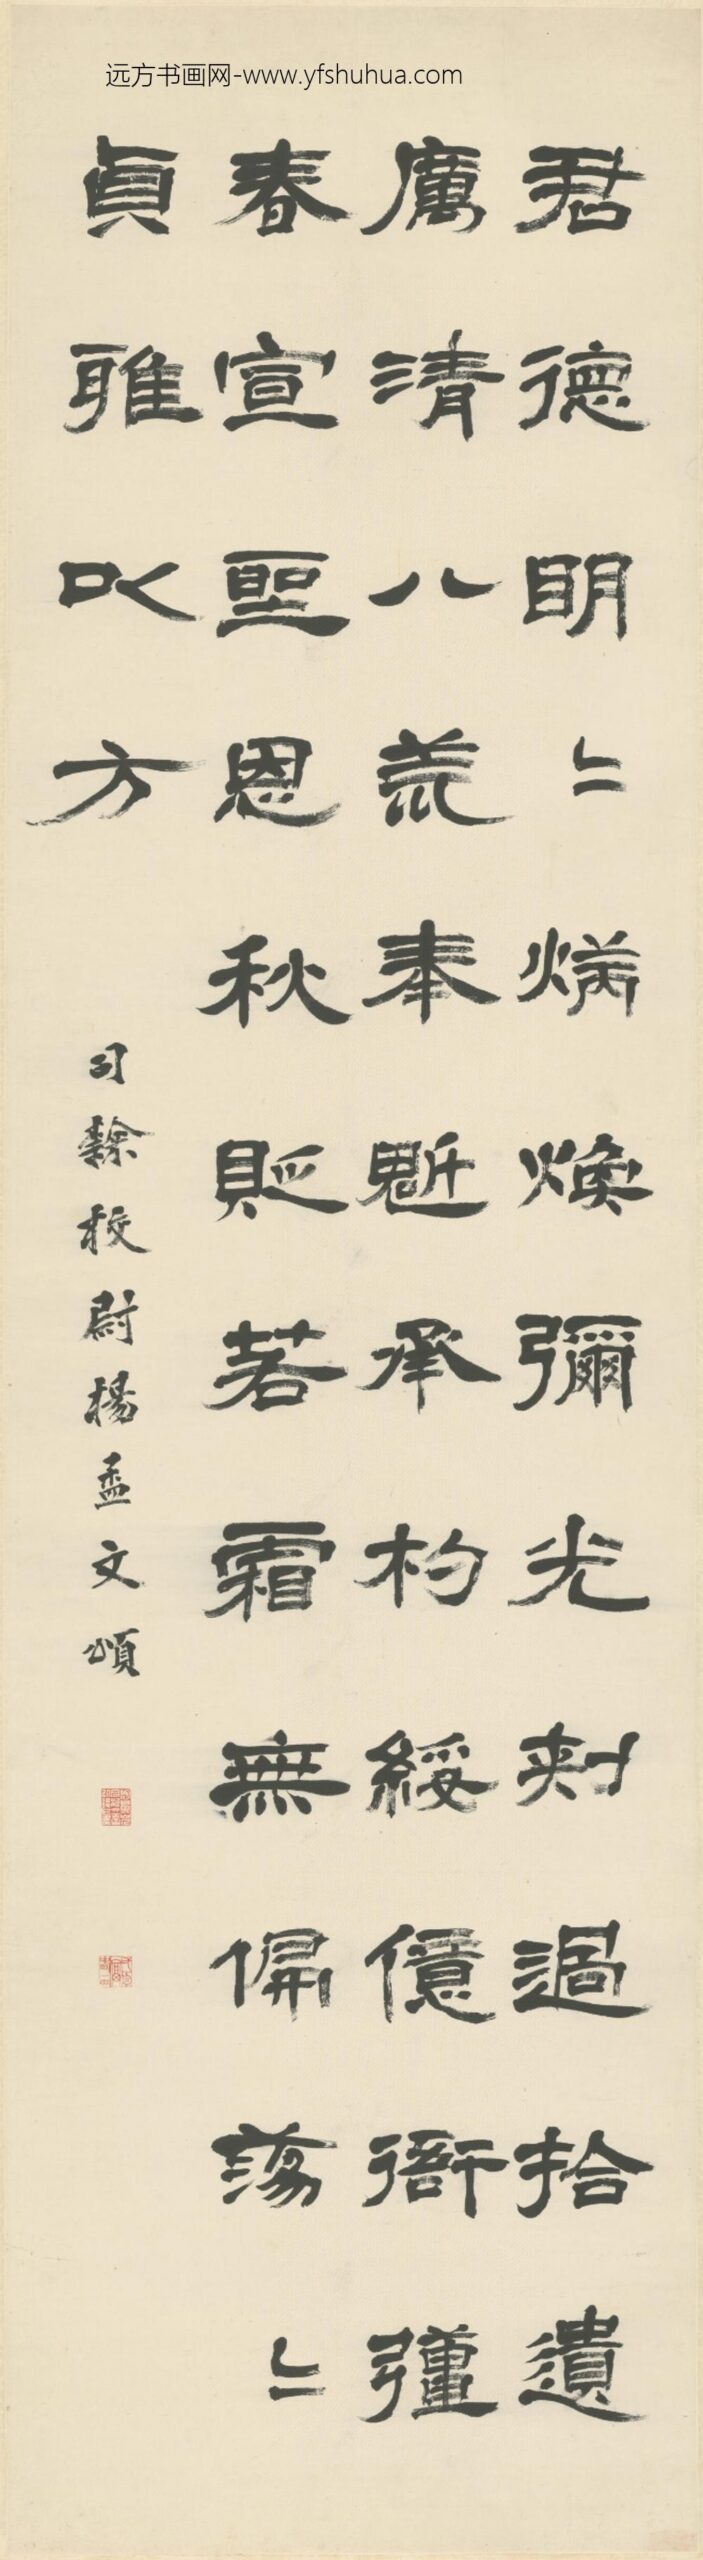 远方书画网-www.yfshuhua.com
君德明〻煒煥彌光刺過拾遺
厲清八荒奉魁承杓綏億衙彊
春宣聖恩秋貶若霜無偏蕩〻
貞雅以方
司隸校尉楊孟文頌